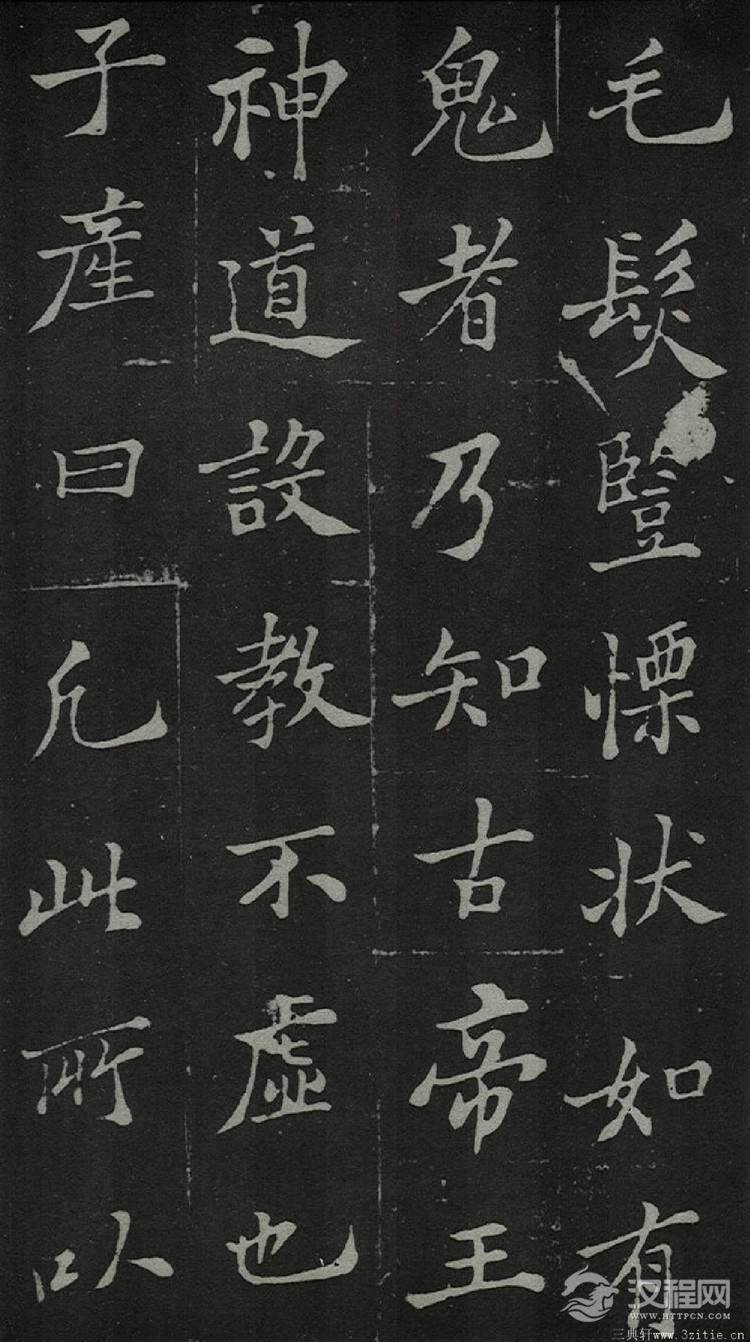 毛髮豎慄状如有
鬼者乃知古帝王
神道設教不虛也
子產曰凡此所以
汉程网
WWW.HTTPCN.COM
三典轩www.3zitie.cn